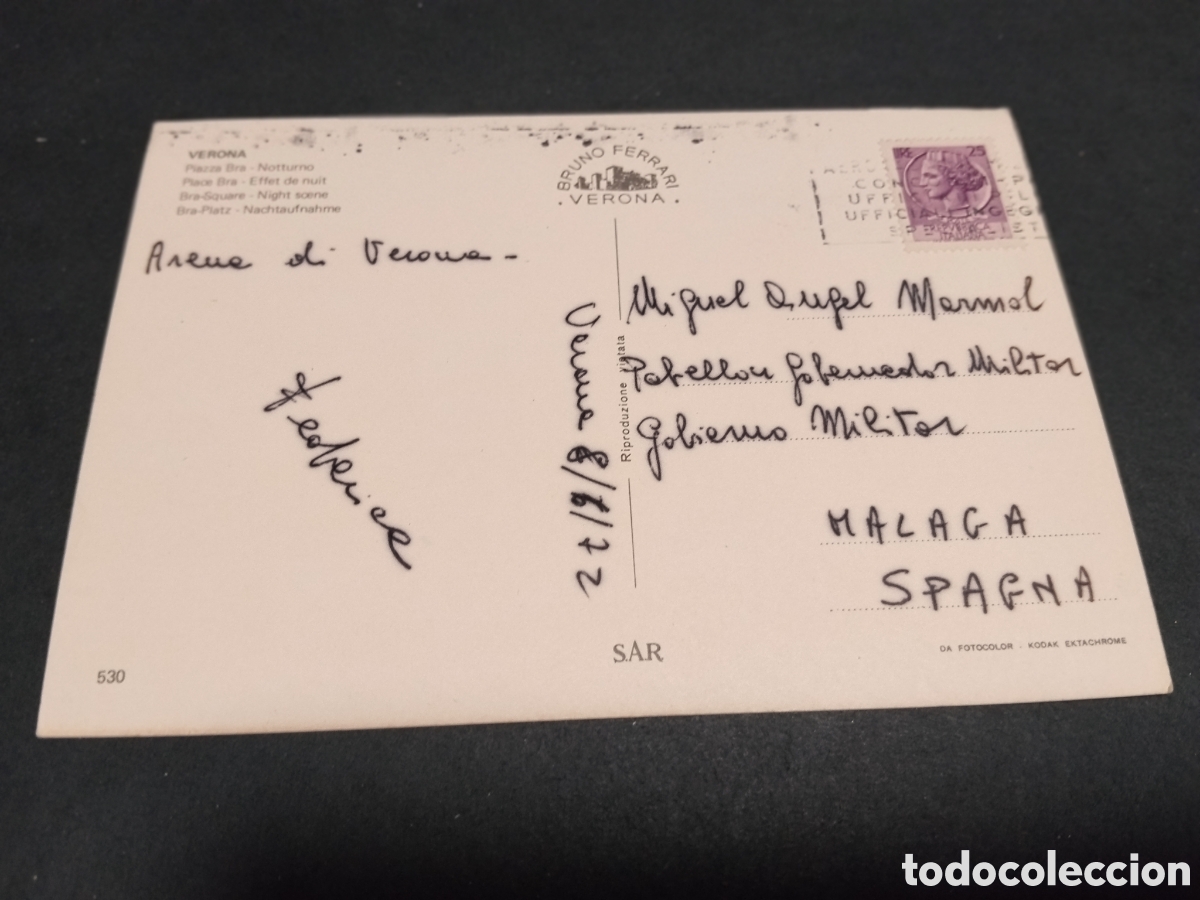 VERONA
Piazza Bra - Notturno
Place Bra - Effet de nuit
Bra-Square - Night scene
Bra-Platz - Nachtaufnahme
BRUNO FERRARI
. VERONA .
25
Arena di Verona -
Federica
Verona 8/6/72
Riproduzione vietata
Miguel Angel Marmol
Pabellon Gobernador Militar
Gobierno Militar
MALAGA
SPAGNA
530
S.A.R
DA FOTOCOLOR - KODAK EKTACHROME
todocoleccion